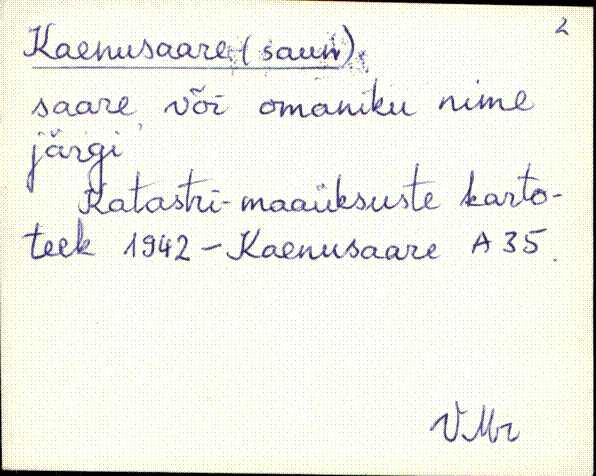 2
Kaenusaare (saun)
saare või omaniku nime
järgi
Katastri-maaüksuste karto-
teek 1942 - Kaenusaare A 35.
VMr